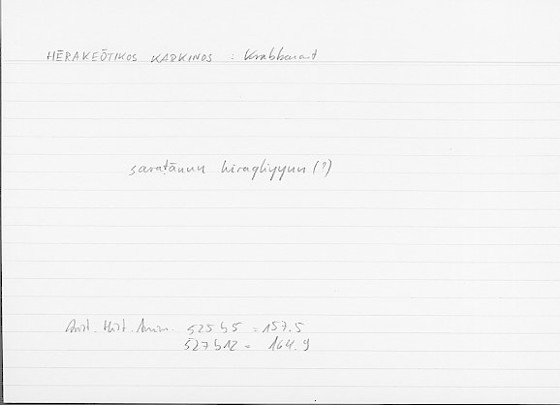 HĒRAKEŌTIKOS KARKINOS : Krabbenart
saraṭānun hiraqliyyun (?)
Arist. Hist. Anim. 525 b5 = 157.5
527 b12 = 164.9